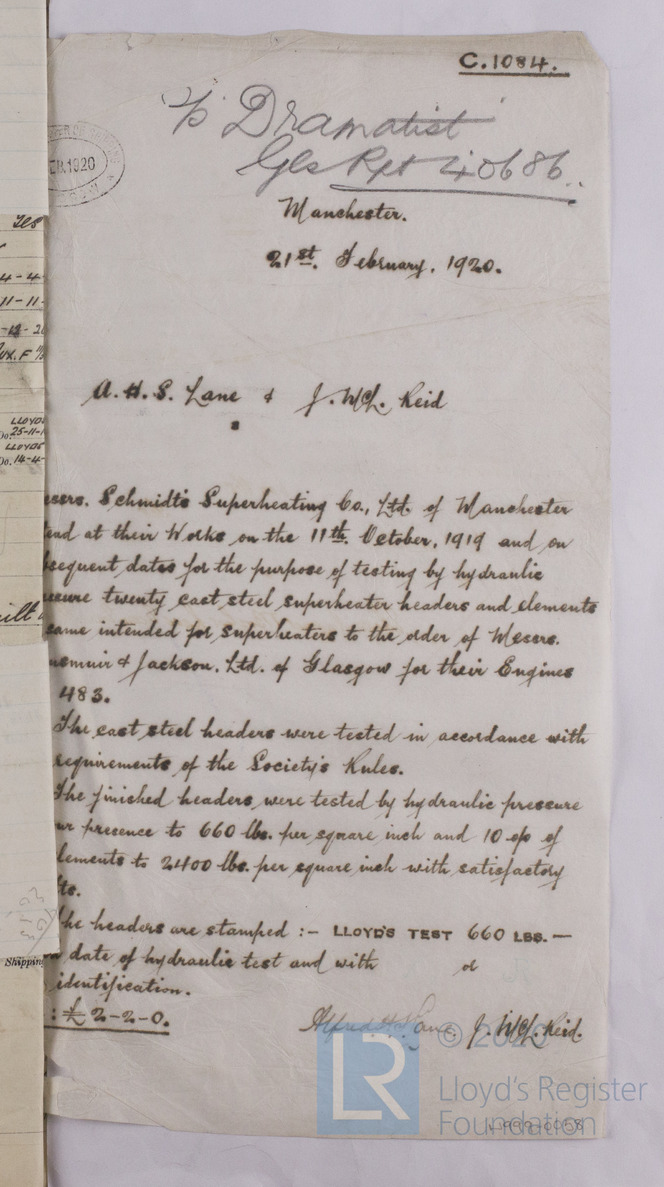 C.1084.
S/S Dramatist
Gls Rpt 40686.
EB.1920
Manchester.
21st. February, 1920.
A. H. S. Lane & J. McL. Reid
Schmidt's Superheating Co., Ltd. of Manchester
at their Works on the 11th. October, 1919 and on
sequent dates for the purpose of testing by hydraulic
twenty cast steel superheater headers and elements
same intended for superheaters to the order of Messrs.
& Jackson, Ltd. of Glasgow for their Engines
483.
The cast steel headers were tested in accordance with
requirements of the Society's Rules.
The finished headers were tested by hydraulic pressure
ur presence to 660 lbs. per square inch and 10 % of
elements to 2400 lbs. per square inch with satisfactory
ts.
The headers are stamped :- LLOYD'S TEST 660 LBS. —
date of hydraulic test and with or
identification.
: £2-2-0.
Alfred H S Lane. J. McL. Reid.
Shipping
LLOYDS
25-11-1
LLOYDS
14-4-
© 2020
LR
Lloyd's Register
Foundation